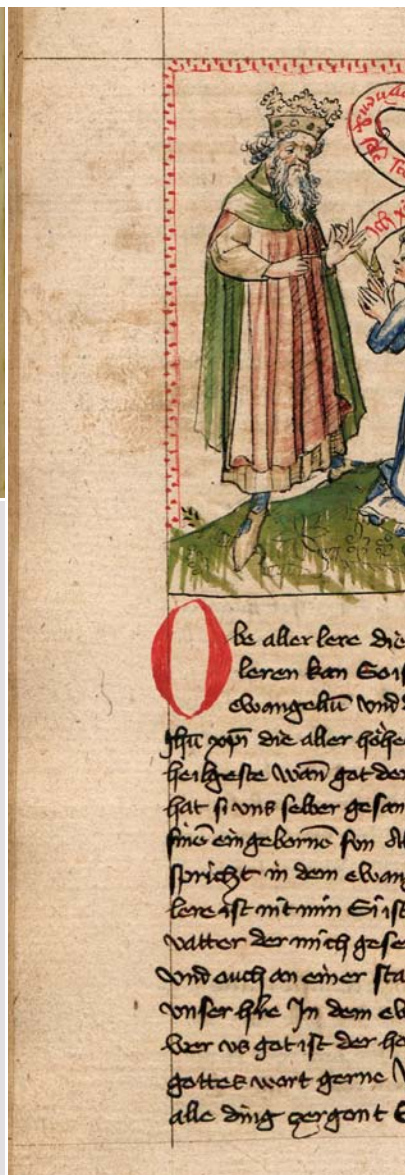 Obe aller lere die
leren kan So ist
ewangeliū vnd
Jhū xpī die aller höhe
heilgeste wān got der
hat si vns selber gesan
sinē eingebornē sun
spricht in dem ewang
lere ist nit min Si ist
vatter der mich gese
vnd ouch an einer sta
vnser hre In dem ew
wer vs got ist der hö
gottes wort gerne
alle ding zergont